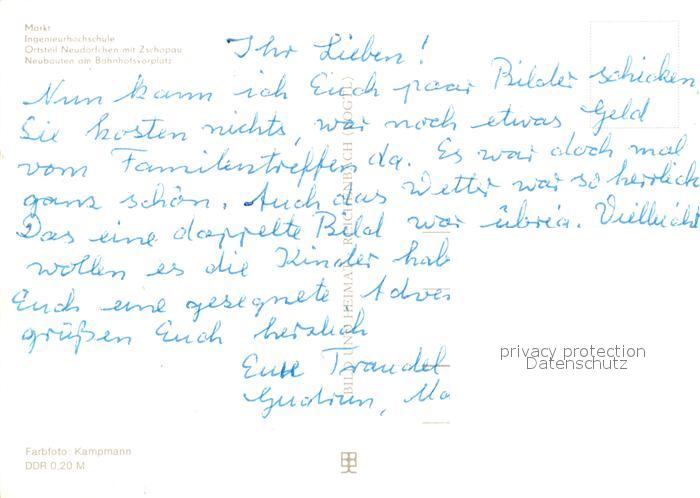 Markt
Ingenieurhochschule
Ortsteil Neudörfchen mit Zschopau
Neubauten am Bahnhofsvorplatz
Ihr Lieben!
Nun kann ich Euch paar Bilder schicken,
Sie kosten nichts, war noch etwas Geld
vom Familientreffen da. Es war doch mal
ganz schön. Auch das Wetter war so herrlich
Das eine doppelte Bild war übrig. Vielleicht
wollen es die Kinder hab
Euch eine gesegnete Adve
grüßen Euch herzlich
Eure Traudel
Gudrun, Ma
BILD UND HEIMAT REICHENBACH (VOGTL)
privacy protection
Datenschutz
Farbfoto: Kampmann
DDR 0,20 M